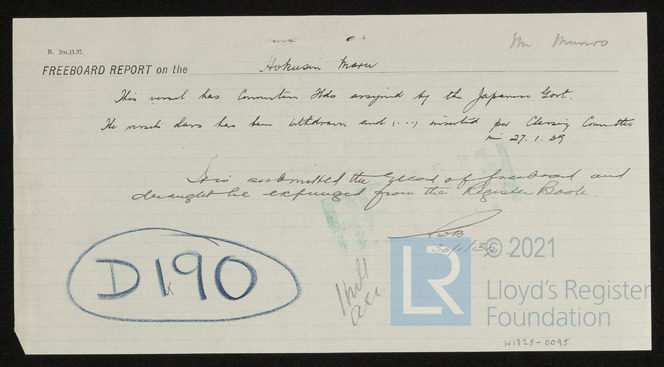 Mr Munro
B. 2m,11,37.
FREEBOARD REPORT on the Hokusin Maru
This vessel has Convention Fbds assigned by the Japanese Govt.
The vessels class has been withdrawn and (...) inserted per Classing Committee
min 27.1.39
It is submitted the record of freeboard and
draught be expunged from the Register Book.
30/1/39
D190
LR © 2021
Lloyd's Register
Foundation
W1328-0095